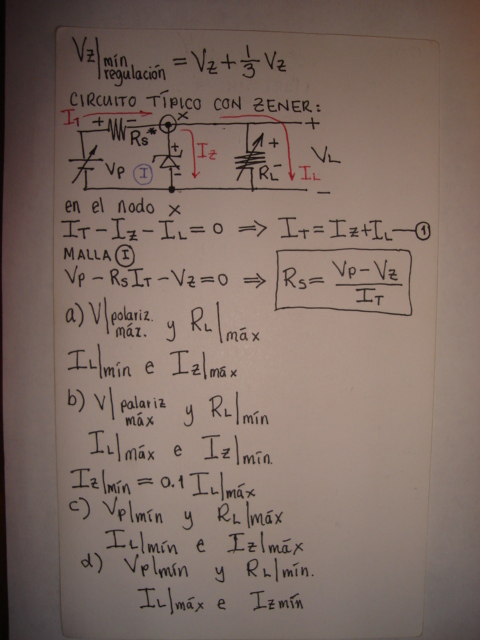 Vz|mín regulación = Vz + 1/3 Vz
CIRCUITO TÍPICO CON ZENER:
IT + - x +
Rs + Iz + VL
Vp I - RL - IL -
en el nodo x
IT - Iz - IL = 0 ⇒ IT = Iz + IL — ①
MALLA Ⓘ
Vp - RsIT - Vz = 0 ⇒ Rs = Vp - Vz / IT
a) V|polariz. máz. y RL|máx
IL|mín e Iz|máx
b) V|polariz máx y RL|mín
IL|máx e Iz|mín.
Iz|mín = 0.1 IL|máx
c) Vp|mín y RL|máx
IL|mín e Iz|máx
d) Vp|mín y RL|mín.
IL|máx e Izmín